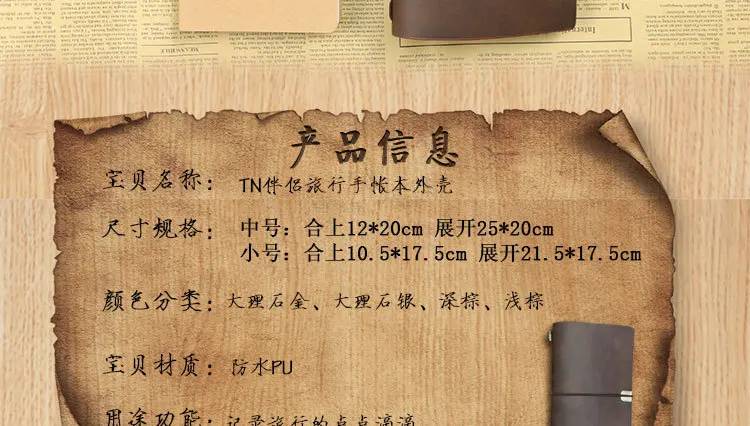 产品信息
宝贝名称：TN伴侣旅行手帐本外壳
尺寸规格：中号：合上12*20cm 展开25*20cm
小号：合上10.5*17.5cm 展开21.5*17.5cm
颜色分类：大理石金、大理石银、深棕、浅棕
宝贝材质：防水PU
用途功能：记录旅行的点点滴滴